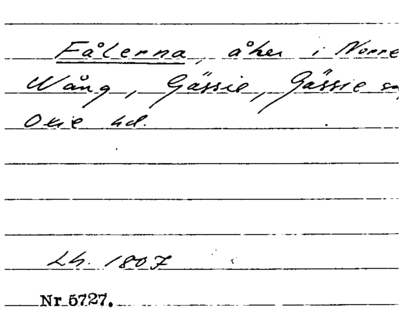 Fålerna, åker i Norre
Wång, Gässie, Gässie sn,
Oxie hd.
Lh. 1807
Nr 5727.